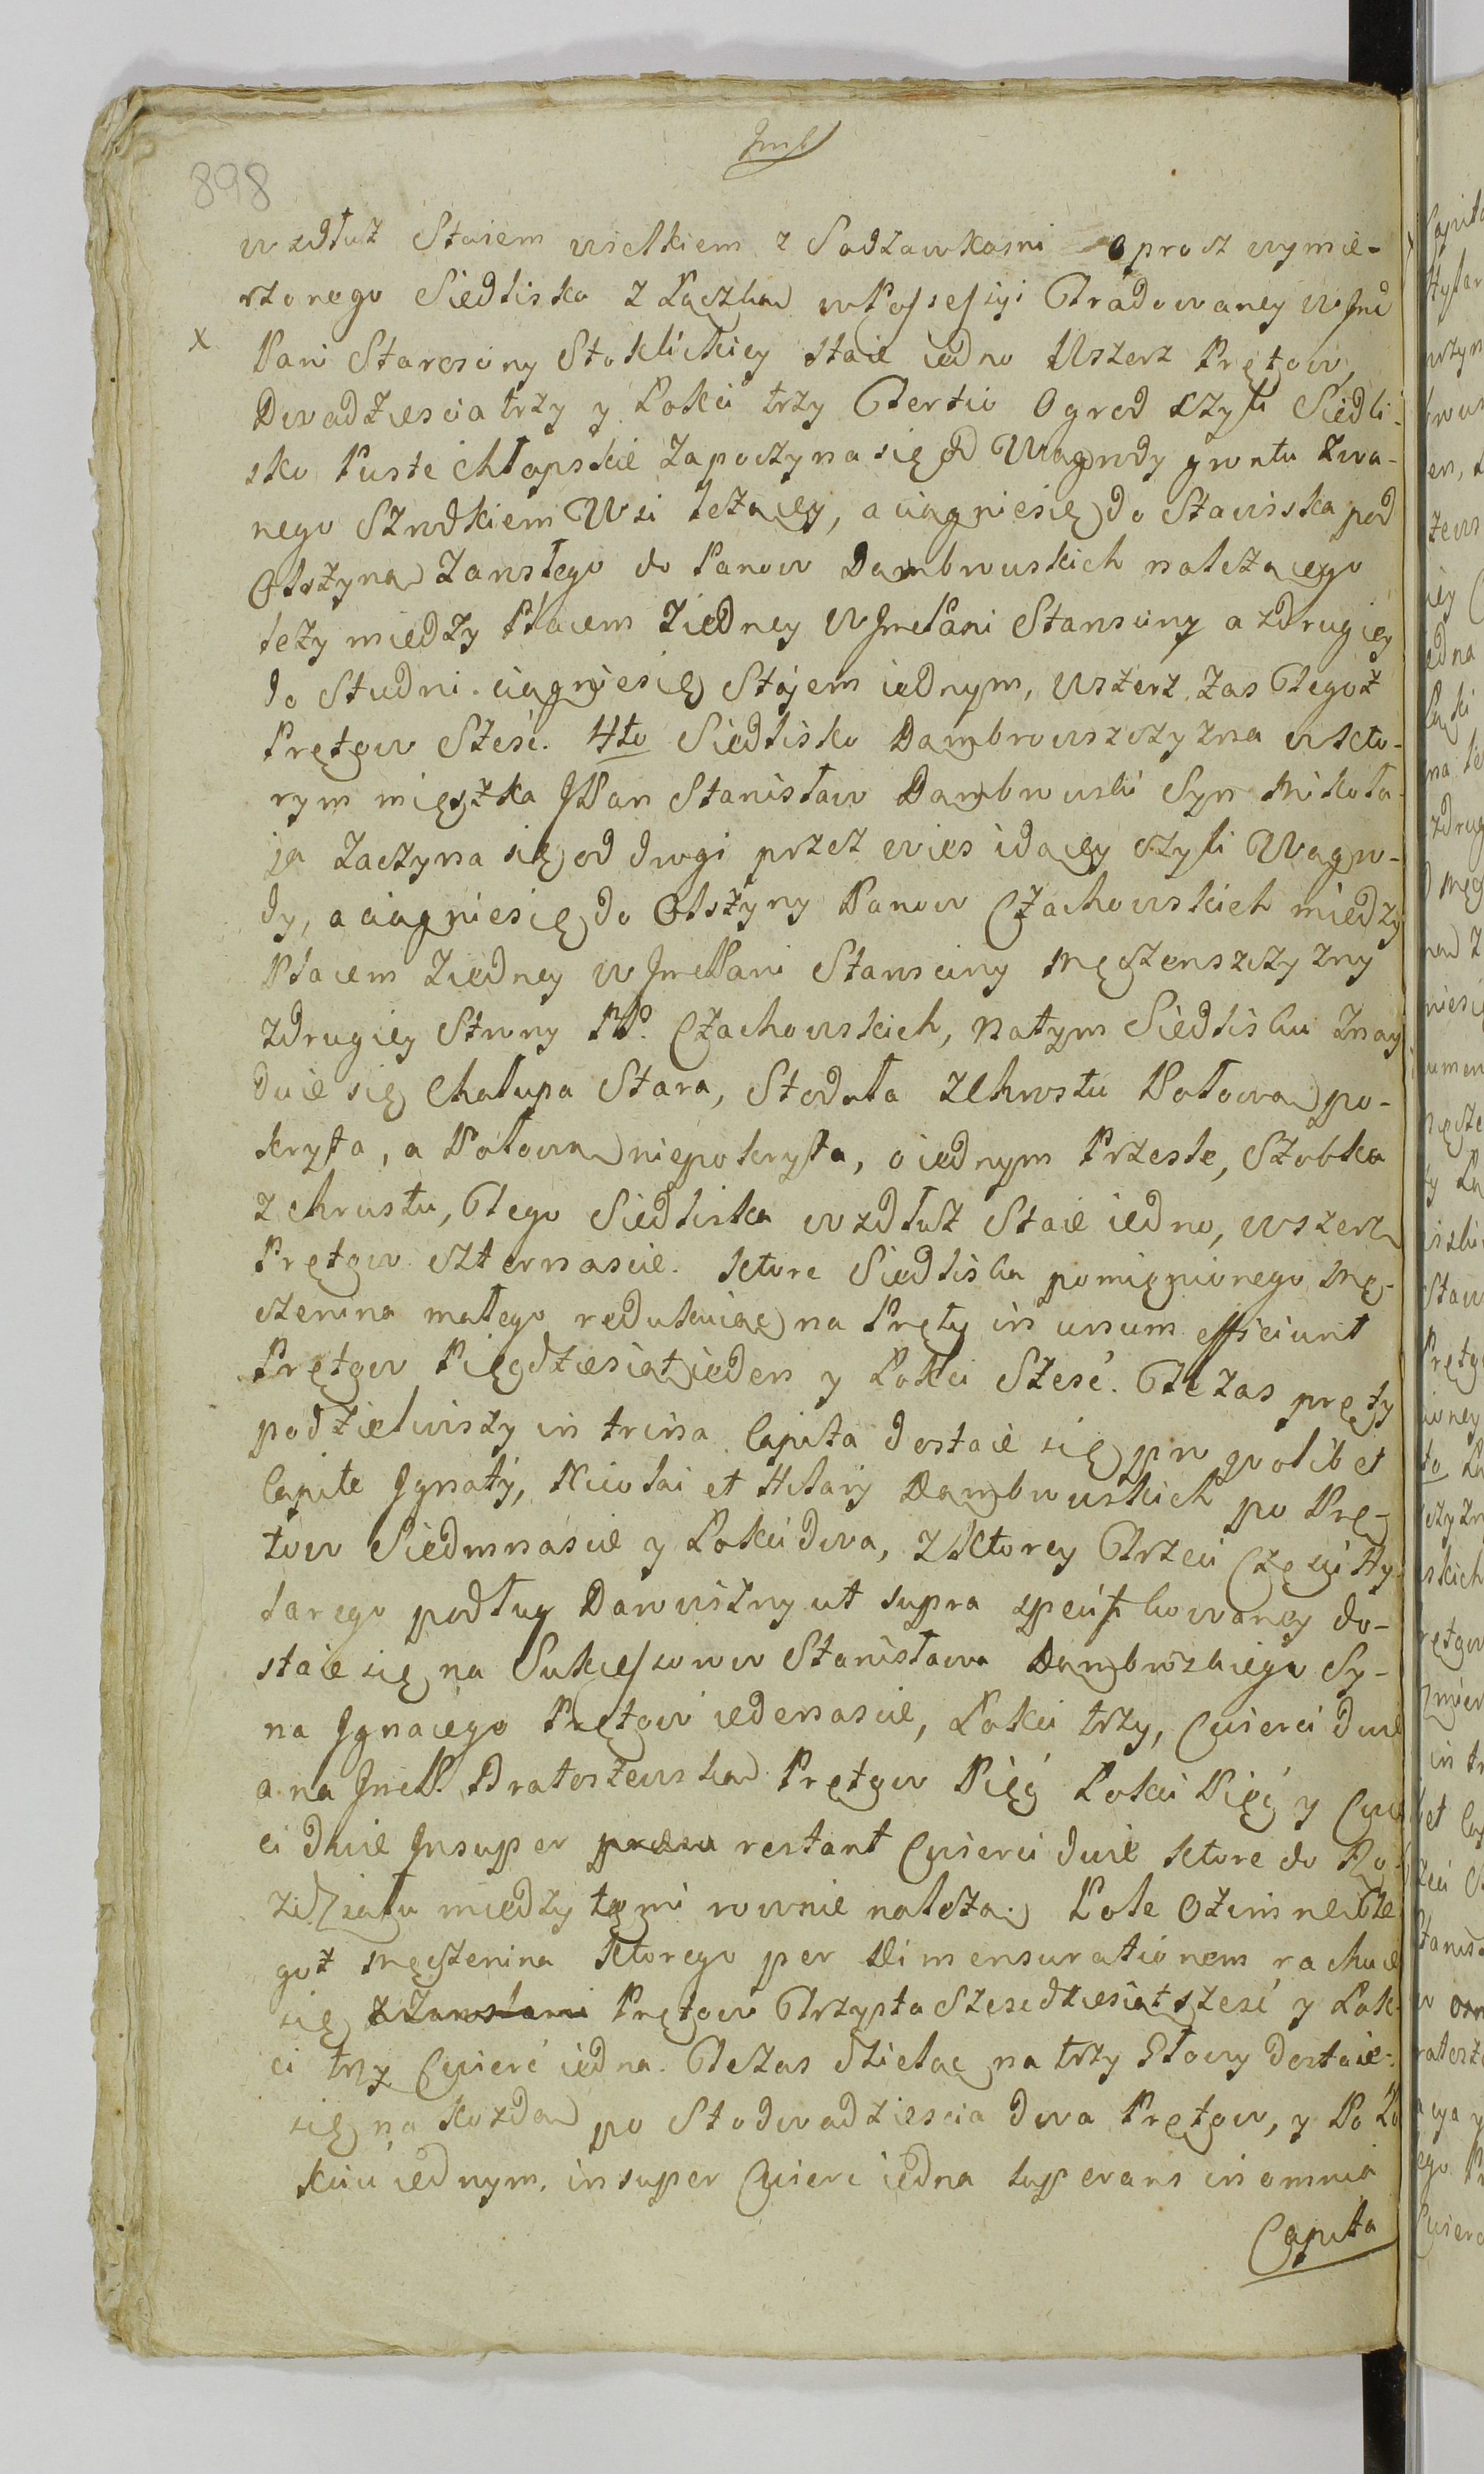 898
wzdłuż Staiem wielkiem z Sadzawkami oprocz wymie-
rzonego Siedliska z Łączką w Possessyi Tradowaney W Jmć
x Pani Starościny Stoklickiey staie iedno Wszerz Prętow
Dwadziescia trzy y Łokci trzy Tertio Ogrod czyli Siedli-
sko Puste chłopskie zapoczyna się od Wagrody gruntu zwa-
nego Srzodkiem Wsi leżącey, a ciągnie się do Stawiska pod
Olszyną Zarosłego do Panow Dambrowskich należącego
leży między Placem z iedney W Jmć Pani Starościny a z drugiey
do Studni ciągnie się Stajem iednym, wszerz zas Tegoż
Prętow Szesć. 4to Siedlisko Dambrowszczyzna w Kto-
rym mięszka JPan Stanisław Dambrowski Syn Mikoła-
ja Zaczyna się od drogi przez wies idącey czyli Wagro-
dy, a ciągnie się do Olszyny Panow Czachowskich między
Placem z iedney W Jmć Pani Starościny Męczenszczyzny
z drugiey Strony PP. Czachowskich, Na tym Siedlisku Znay
duie się Chałupa Stara, Stodoła z Chrostu Połową po-
kryta, a Połową niepokryta, o iednym Przesle, Szobka
z chrustu, Tego Siedliska wzdłuż Staie iedno, wszerz
Prętow czternascie. Ktore Siedliska pomienionego Mę-
czenina małego redukuiąc na Pręty in unum efficiunt
Prętow Pięćdziesiąt ieden y Łokci Szesć. Te zas pręty
podzieliwszy in trina Capita dostaie się pro quolibet
Capite Ignaty, Nicolai et Hilary Dambrowskich po Prę-
tow Siedmnascie y Łokci dwa, z Ktorey Trzeci Częsci Hy-
larego podług Darowizny ut supra specifikowaney do-
staie się na Sukcessorow Stanisława Dambrowskiego Sy-
na Ignacego Prętow iedenascie, Łokci trzy, Cwierci dwie
a na Jmć P. Bratoszewską Prętow Pięć Łokci Pięć y Cwie
ci dwie Insuper restant Cwierci dwie ktore do Ro-
zdziału między temi rownie należą. Pole Ozimne Te
goż Męczenina Ktorego per Dimensurationem rachuie
się z Zaroslami Prętow Trzysta Szescdziesiąt szesć y Łok-
ci trzy Cwierć iedna. Te zas dzieląc na trzy Głowy dostaie-
się na każdą po Stodwadziescia dwa Prętow, y Po Ło
kciu iednym, insuper Cwierć iedna superans in omnia
Capita